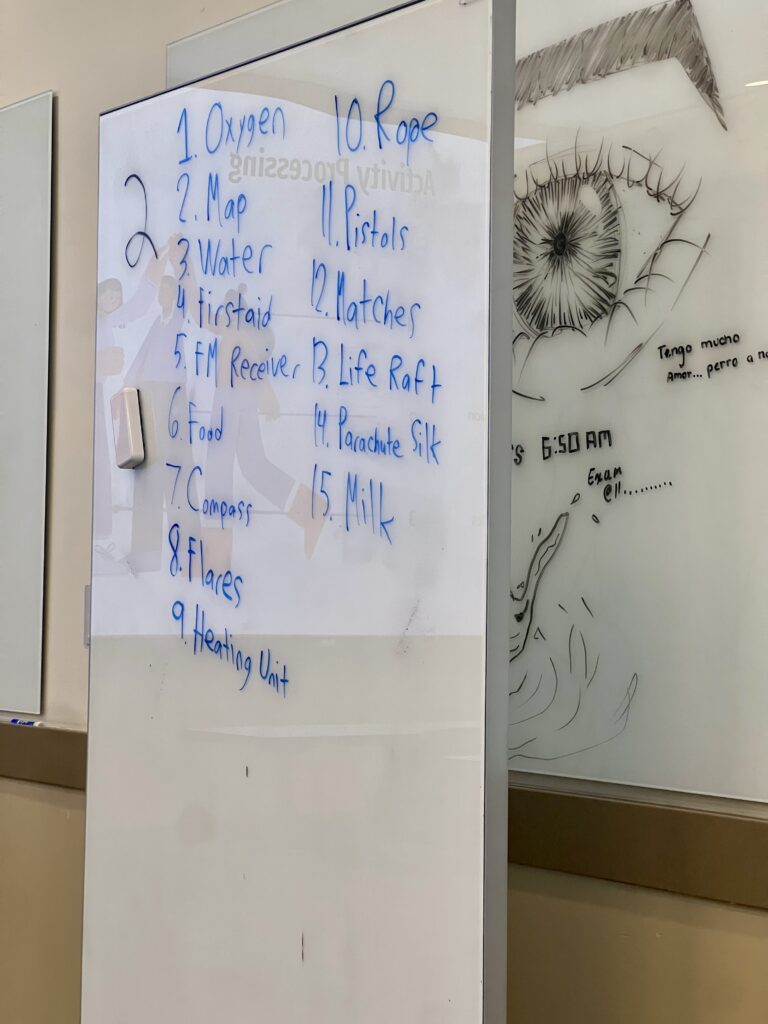 2
1. Oxygen
2. Map
3. Water
4. firstaid
5. FM Receiver
6. Food
7. Compass
8. Flares
9. Heating Unit
10. Rope
11. Pistols
12. Matches
13. Life Raft
14. Parachute Silk
15. Milk
Activity Processing
Tengo mucho
Amor... perro a
6:50 AM
Exam
@11..........